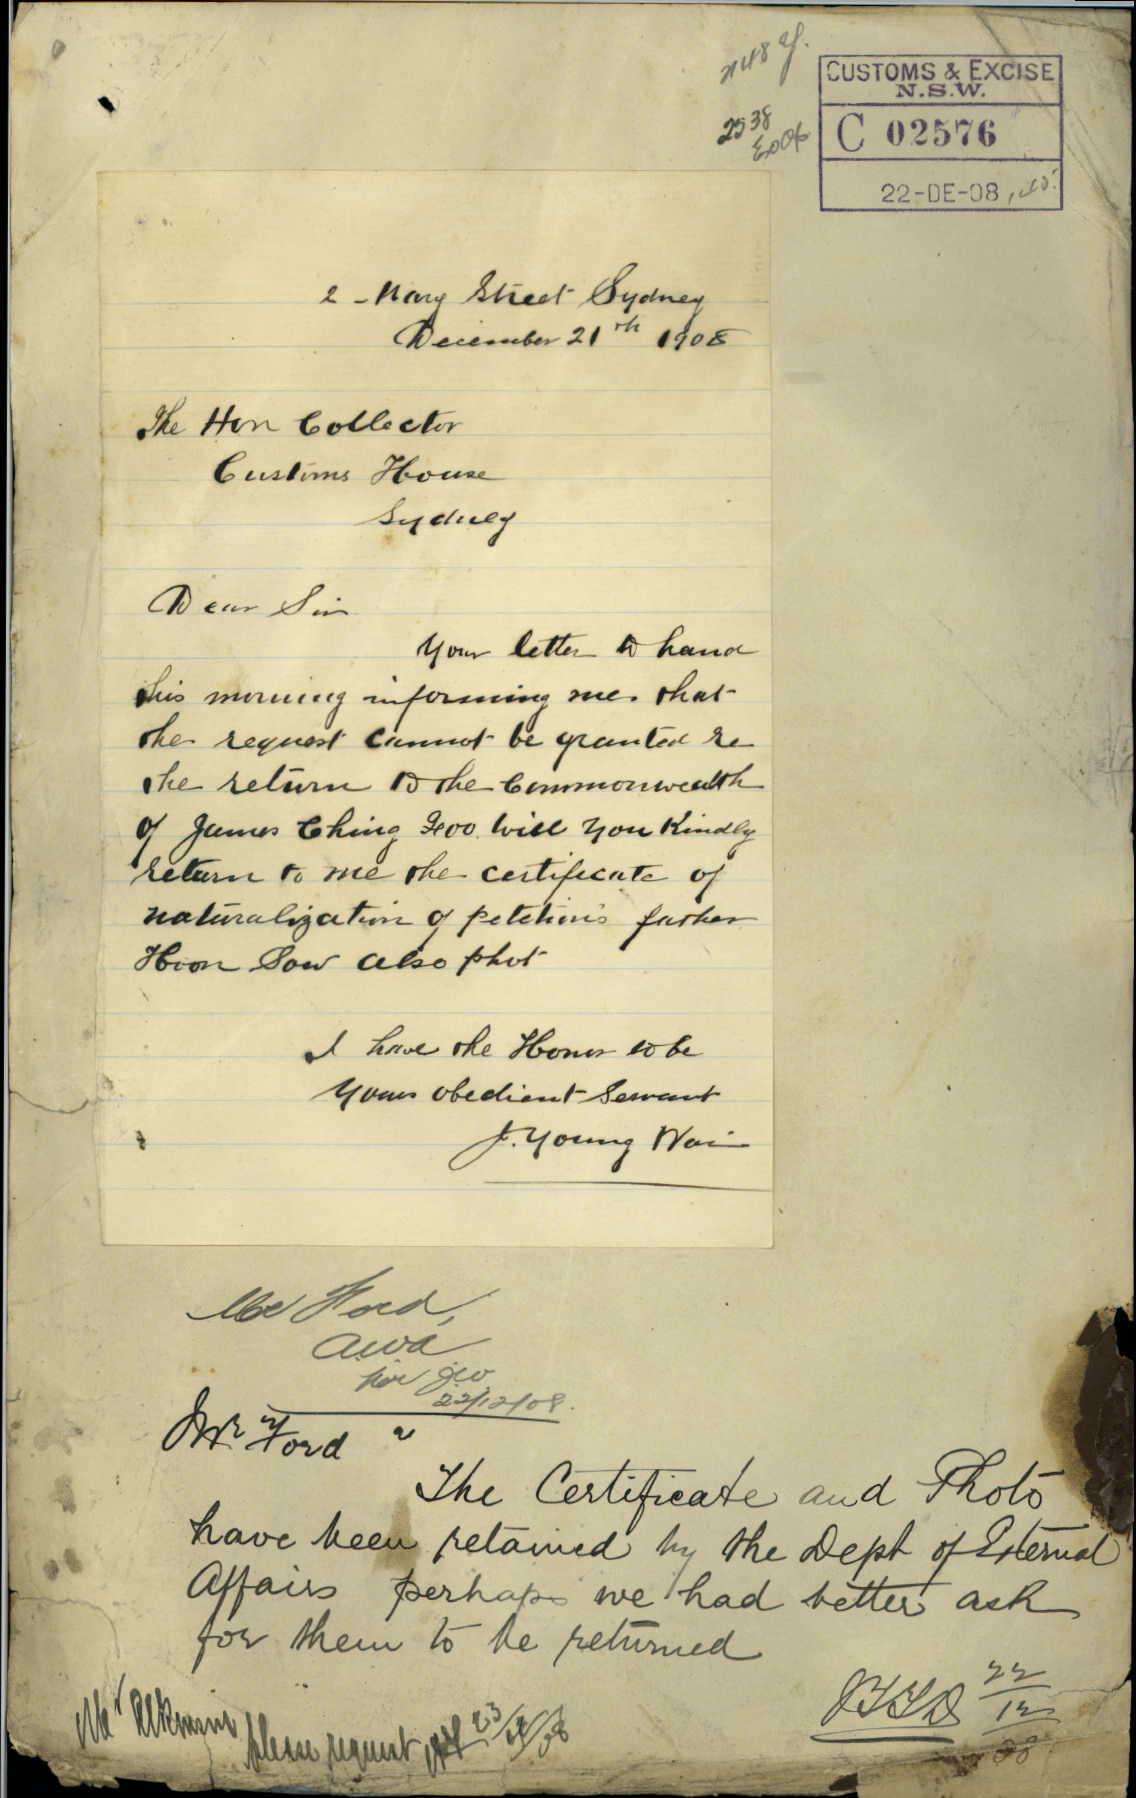 CUSTOMS & EXCISE
N.S.W.
C 02576
22-DE-08
2538
2 - Mary Street Sydney
December 21th 1908
The Hon Collector
Customs House
Sydney
Dear Sir
Your letter to hand
this morning informing me that
the request cannot be granted re
the return to the Commonwealth
of James Ching Foo will you Kindly
return to me the certificate of
naturalization of petetions father
Hoon Sow also phot
I have the Honor to be
Yours obedient Servant
J. Young Wai
Mr Ford,
22/12/08.
Mr Ford
The Certificate and Photo
have been retained by the Dept of External
Affairs perhaps we had better ask
for them to be returned
22
12
08
Mr
please request 23/12/08